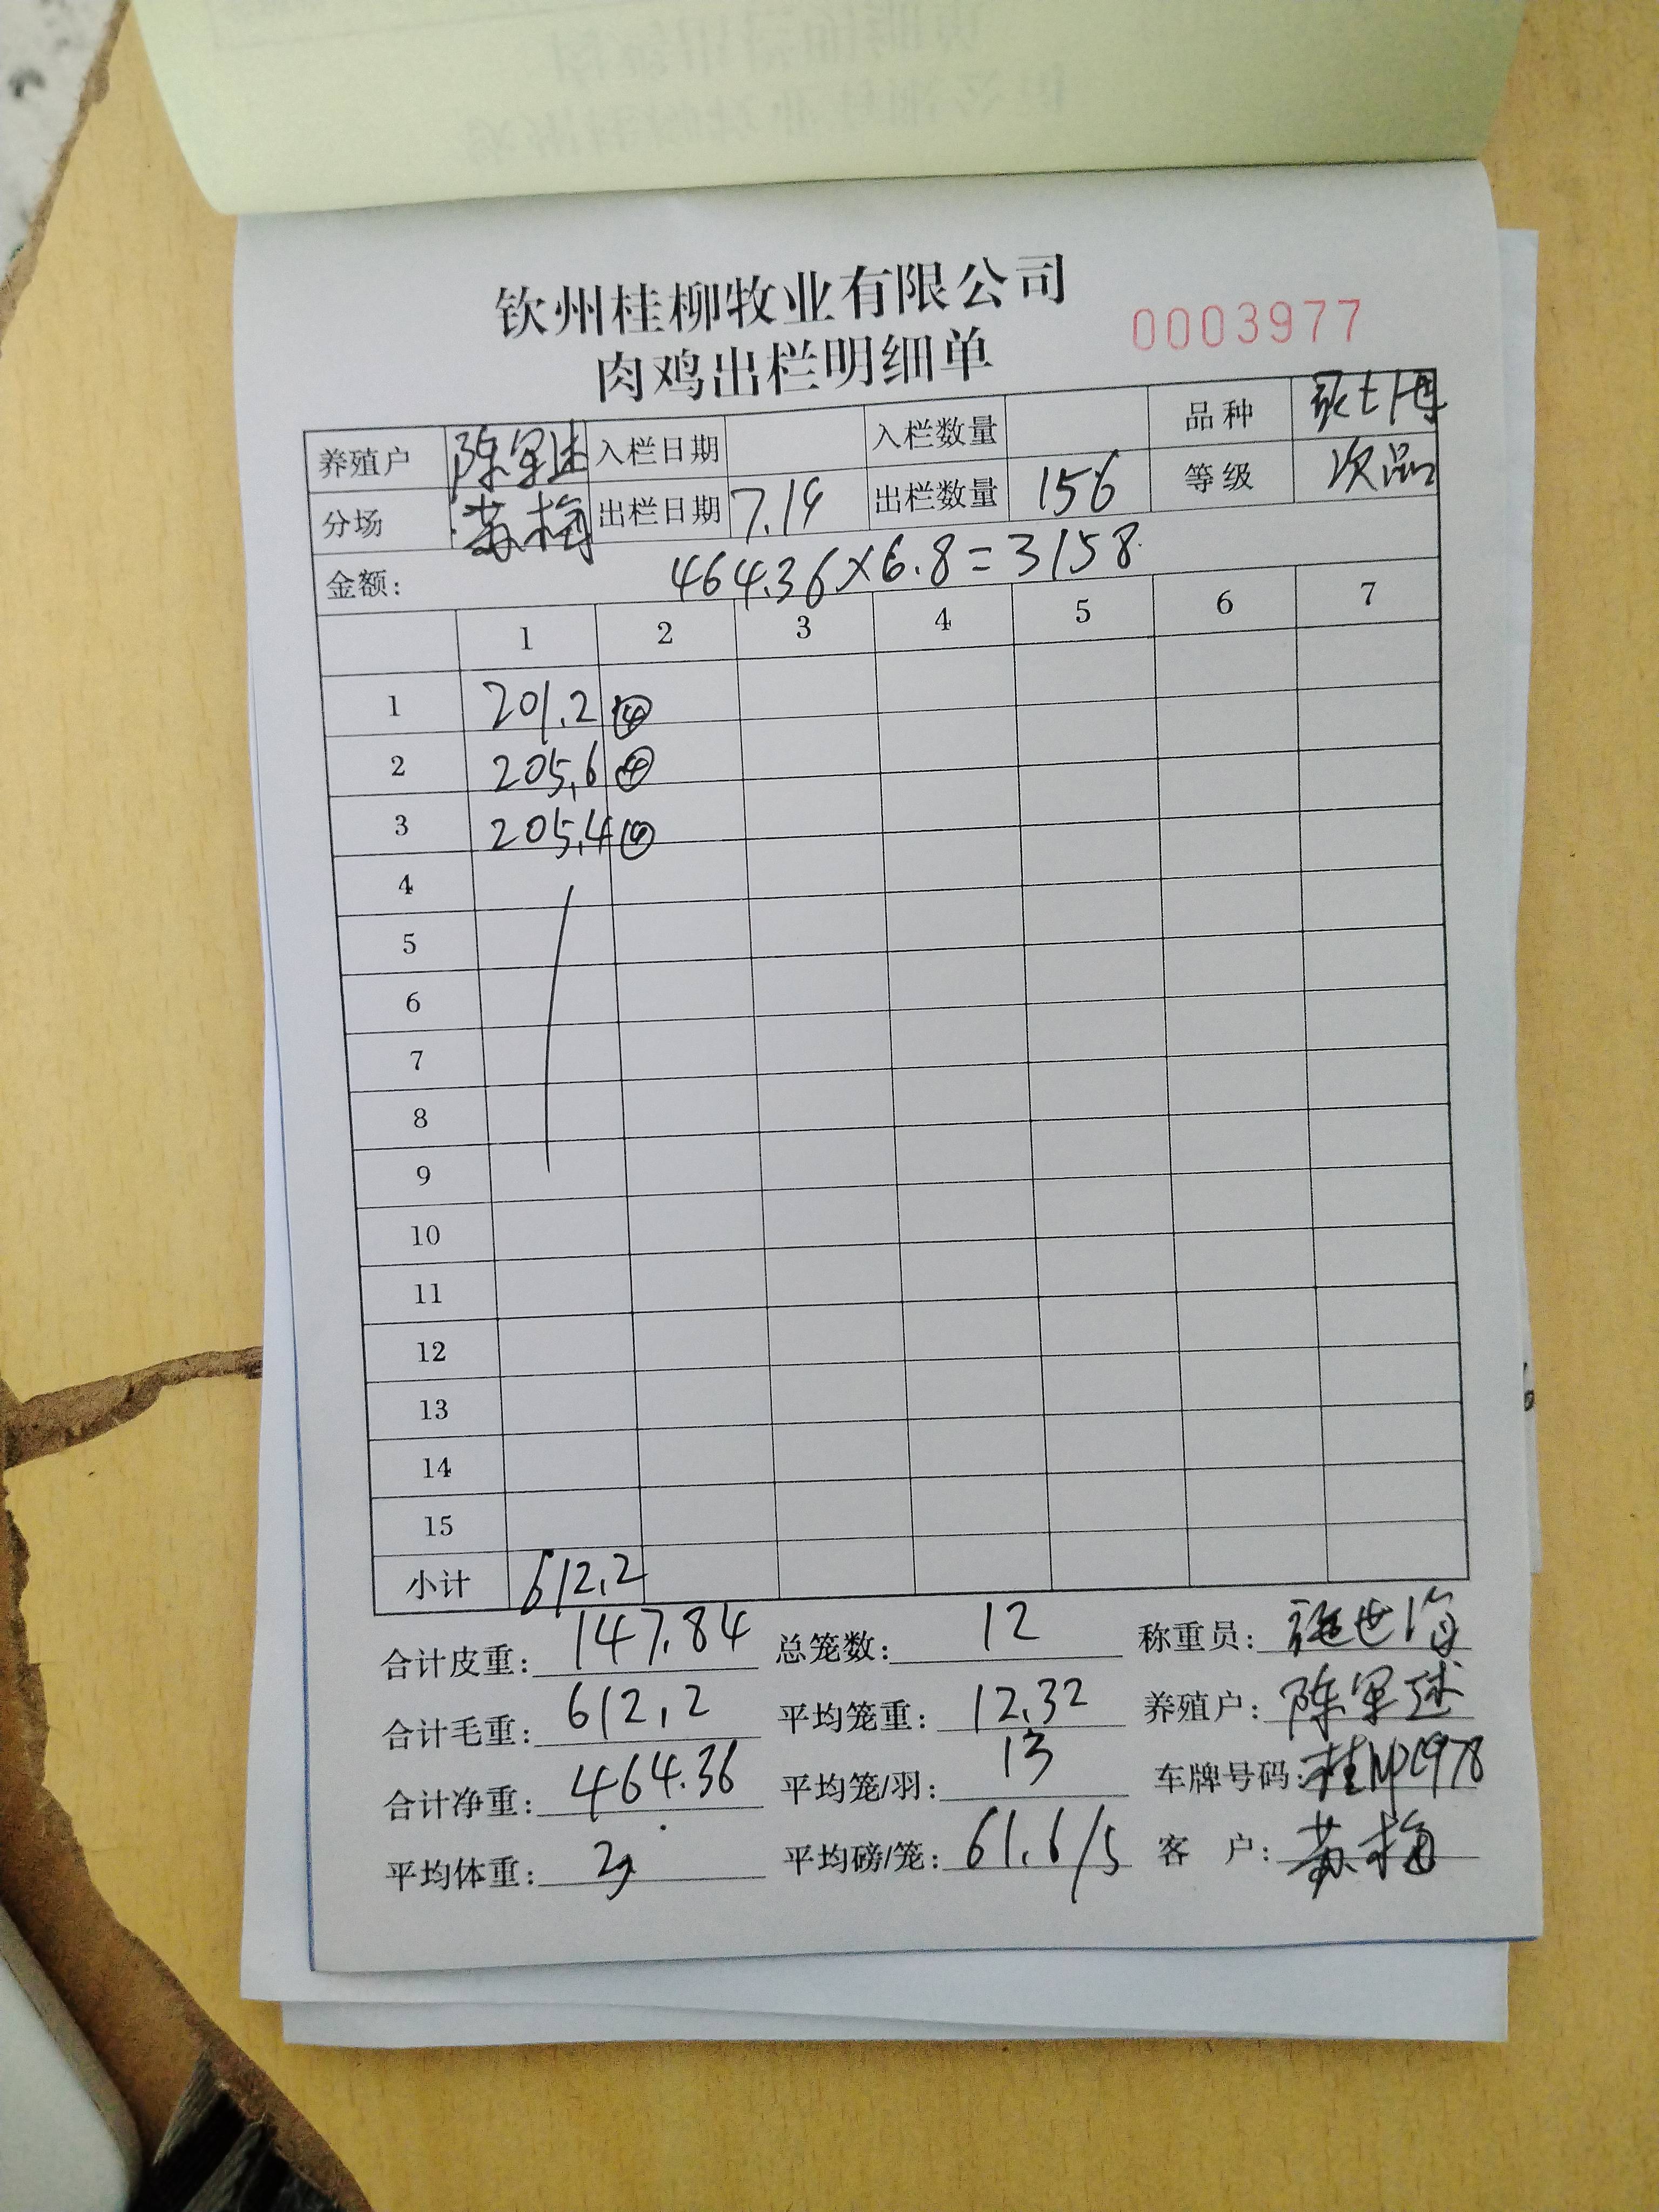 钦州桂柳牧业有限公司
肉鸡出栏明细单
0003977
养殖户 陈军述 入栏日期 入栏数量 品种
分场 苏梅 出栏日期 7.19 出栏数量 156 等级 次品
金额: 464.36×6.8=3158
1 2 3 4 5 6 7
1 201.2 ④
2 205.6 ④
3 205.4 ④
4
5
6
7
8
9
10
11
12
13
14
15
小计 612.2
合计皮重: 147.84 总笼数: 12 称重员:
合计毛重: 612.2 平均笼重: 12.32 养殖户: 陈军述
合计净重: 464.36 平均笼/羽: 13 车牌号码:
平均体重: 平均磅/笼: 61.6/5 客 户: 苏梅